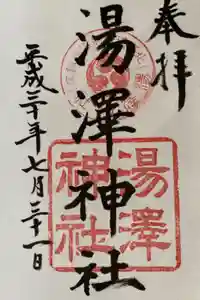 奉拝
湯澤神社
湯澤
神社
平成三十年七月三十一日